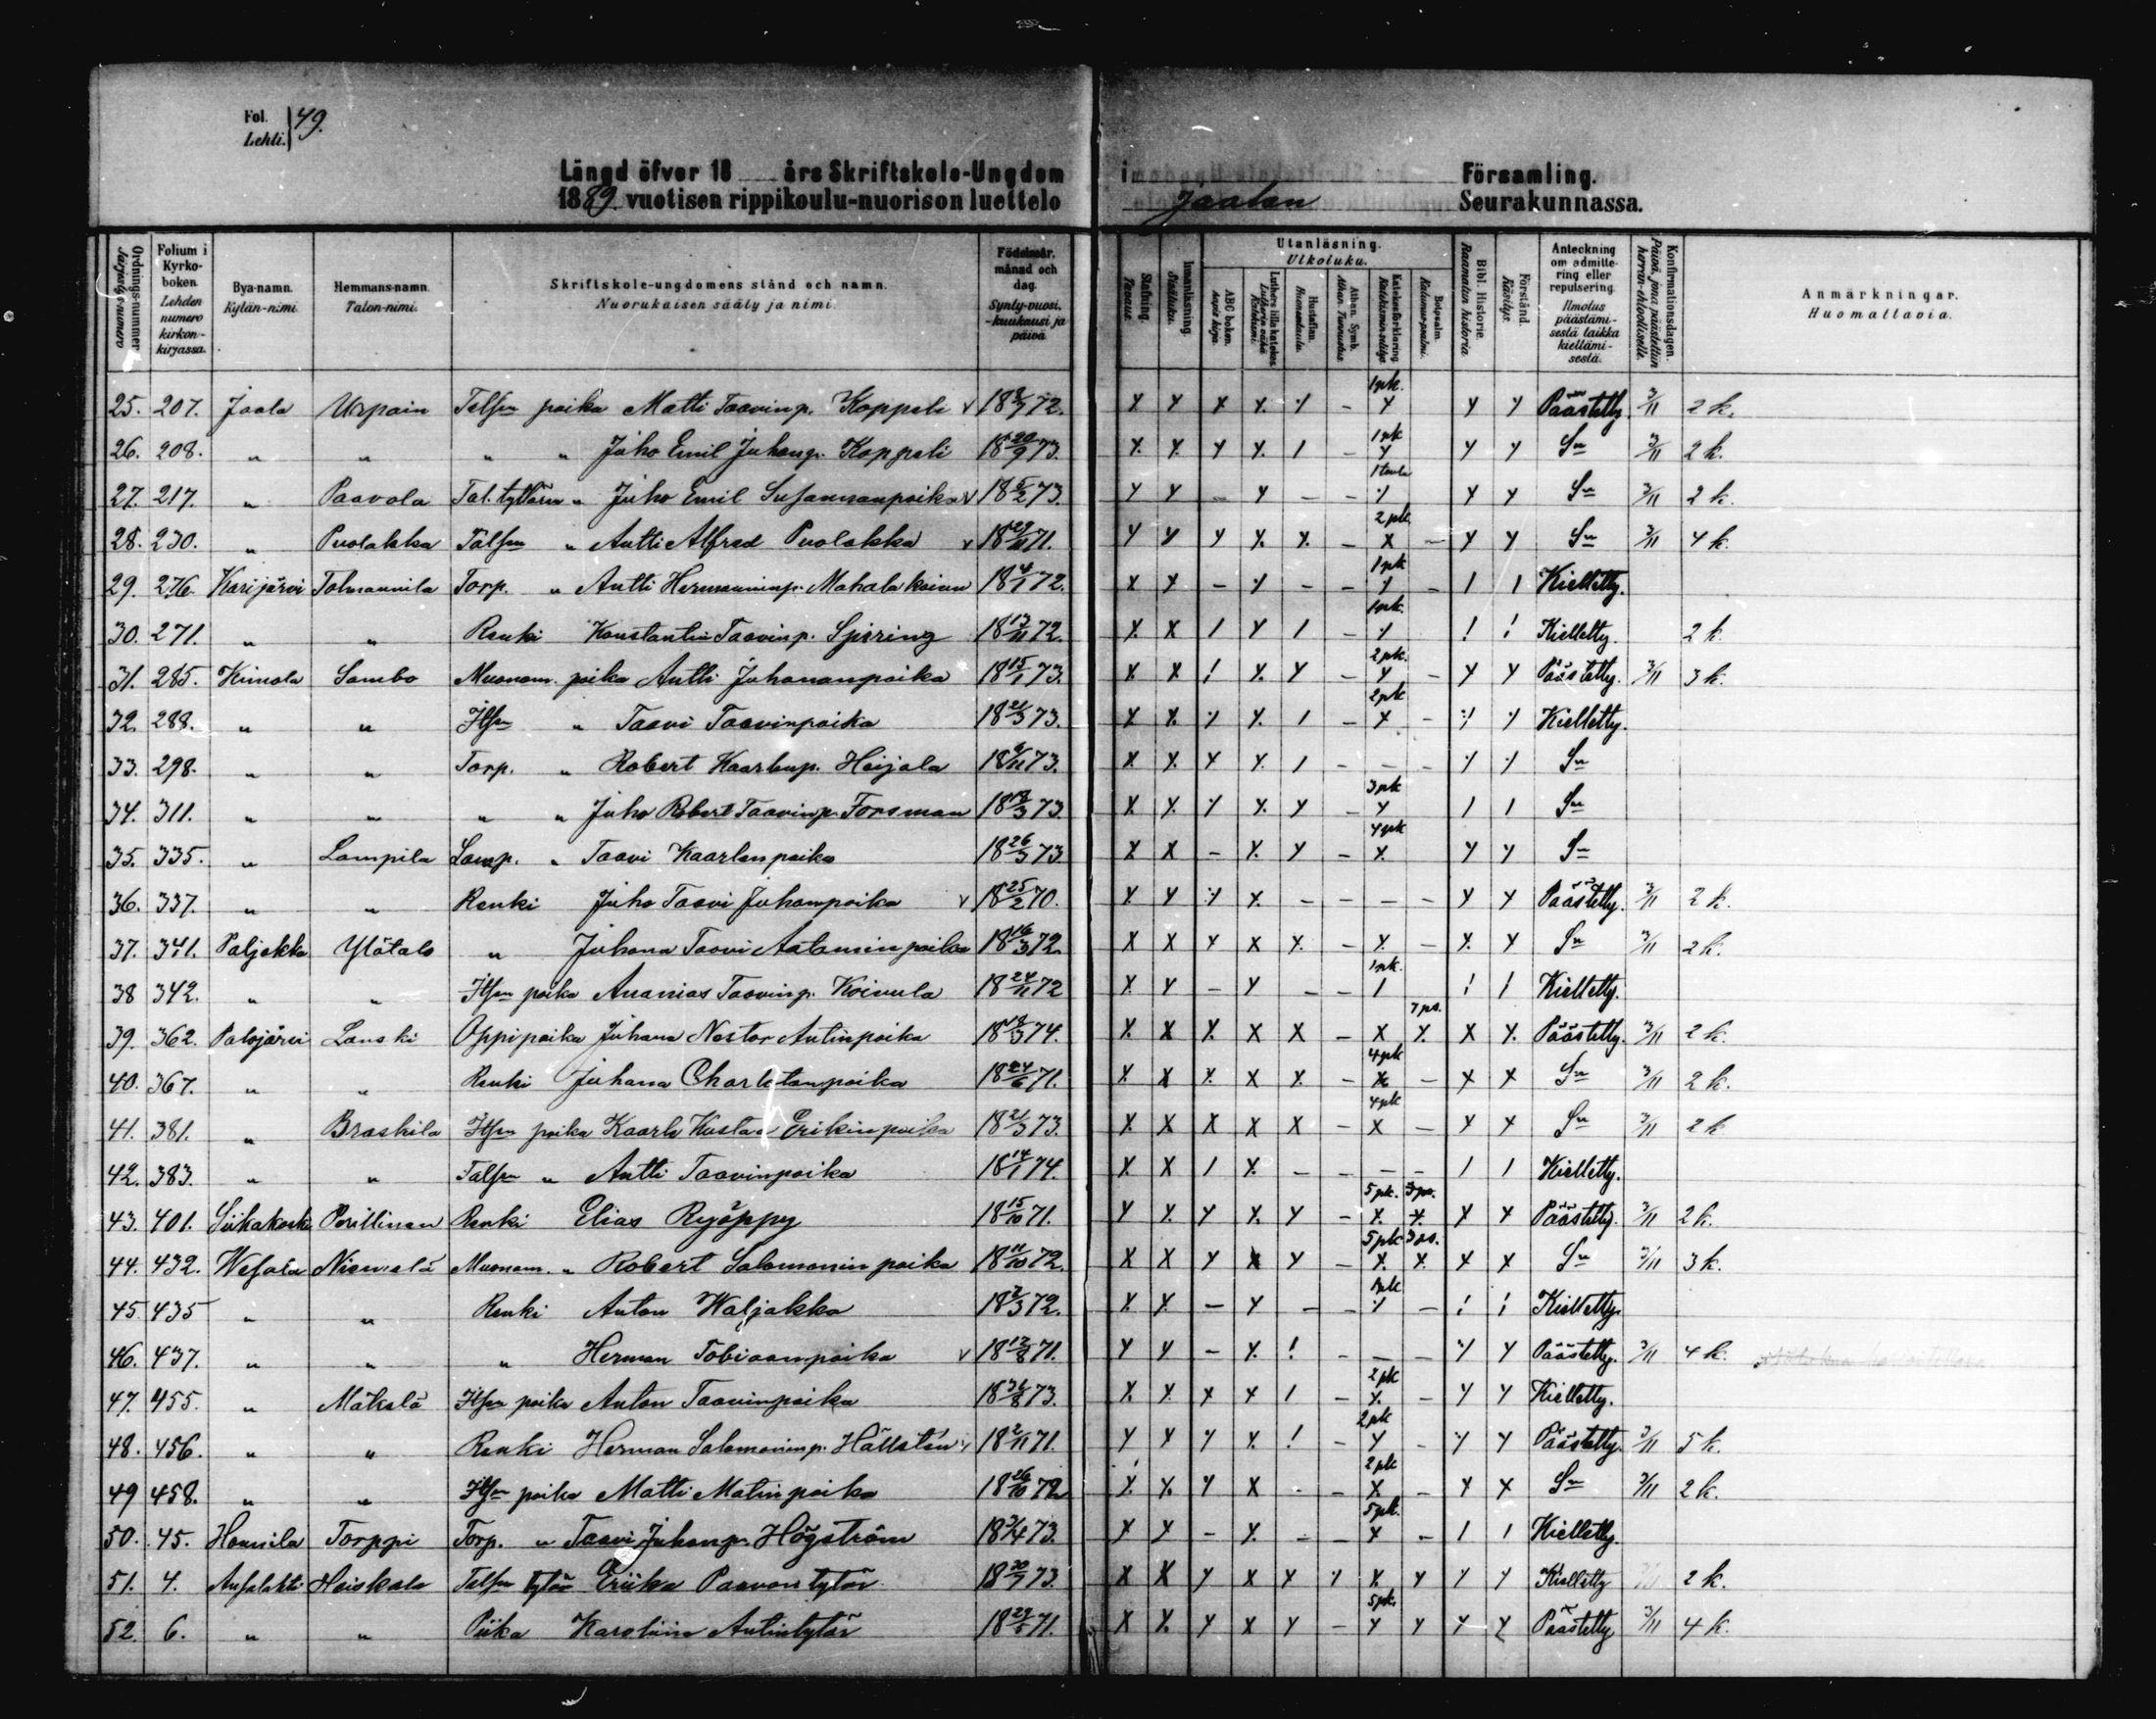 Fol. Lehti. 49.
Längd öfver 18 års Skriftskole-Ungdom i Församling.
1889 vuotisen rippikoulu-nuorison luettelo Jaalan Seurakunnassa.
Ordnings-nummer Järjestysnumero
Folium i Kyrko-boken. Lehden numero kirkon-kirjassa.
Bya-namn. Kylän-nimi.
Hemmans-namn. Talon-nimi.
Skriftskole-ungdomens stånd och namn. Nuorukaisen sääty ja nimi.
Födelseår, månad och dag. Synty-vuosi, -kuukausi ja päivä
Stafning. Tavaus.
Innanläsning. Sisäluku.
Utanläsning. Ulkoluku.
ABC boken. Aapis kirja.
Luthers lilla katekes. Lutherin vähä Katekismi.
Hustaflan. Huoneentaulu.
Athan. Symb. Athan. Tunnustus.
Katekesförklaring Katekismin selitys.
Botpsalm. Katumus-psalmi.
Bibl. Historie. Raamatun historia
Förstånd. Käsitys.
Anteckning om admitte-ring eller repulsering. Ilmotus päästämi-sestä taikka kieltämi-sestä.
Konfirmationsdagen. Päivä, jona päästettiin herran-ehtoolliselle.
Anmärkningar. Huomattavia.
25. 207. Jaala Urpain Talsn poika Matti Taavinp. Koppeli v 18 8/7 72. x x x x y – 1 pk. y y y Päästetty 3/11 2 k.
26. 208. " " " " Juho Emil Juhanp. Koppeli 18 20/9 73. x x y x / – 1 pk y y y Sn 3/11 2 k.
27. 217. " Paavola Tal. tyttären " Juho Emil Susannanpoika v 18 5/2 73. y y – y – – y y y Sn 3/11 2 k.
28. 230. " Puolakka Talsn " Antti Alfred Puolakka v 18 29/11 71. y y y x x – 2 pk. x – y y Sn 3/11 4 k.
29. 276. Karijärvi Tolmannila Torp. " Antti Hermanninp. 18 4/1 72. x y – y – – 1 pk y – / / Kielletty.
30. 271. " " Renki Konstantin Taavinp. Spiring 18 13/11 72. x x / y / – 1 pk. y ! ! Kielletty. 2 k.
31. 285. Kimola Sambo Muonam. poika Antti Juhananpoika 18 15/1 73. x x ! x y – 2 pk. y – y y Päästetty. 3/11 3 k.
32. 288. " " Itsn " Taavi Taavinpoika 18 21/3 73. x x y x / – 2 pk x – y y Kielletty.
33. 298. " " Torp. " Robert Kaarlonp. Heijala 18 9/11 73. x x x x / – – – y y Sn
34. 311. " " " " Juho Robert Taavinp. Forsman 18 18/3 73. x x y x y – 3 pk y / / Sn
35. 335. " Lampila Lamp. " Taavi Kaarlonpoika 18 26/3 73 x x – x y – 4 pk x y y Sn
36. 337. " " Renki Juho Taavi Juhanpoika v 18 25/2 70. x y y x – – – – y y Päästetty. 3/11 2 k.
37. 341. Paljakka Ylätalo " Juhana Taavi Aataminpoika 18 16/3 72. x x x x x – x – x y Sn 3/11 2 k.
38 342. " " Itsn poika Ananias Taavinp. Koivula 18 24/11 72 x y – y – – 1 pk. / ! ! Kielletty.
39. 362. Palojärvi Lanski Oppipoika Juhana Nestor Antinpoika 18 18/3 74. x x x x x – x 7 ps. x x x Päästetty. 3/11 2 k.
40. 367. " " Renki Juhana 18 24/6 71. x x x x x – 4 pk x – x x Sn 3/11 2 k.
41. 381. " Braskila Itsn poika Kaarlo Kustaa Erikinpoika 18 21/3 73. x x x x x – 4 pk x – x x Sn 3/11 2 k
42. 383. " " Talsn " Antti Taavinpoika 18 14/1 74. x x / x – – – – / / Kielletty.
43. 401. Siikakoski Perillinen Renki Elias Ryöppy 18 15/10 71. y x y x y – 5 pk. x 3 ps. x x x Päästetty. 3/11 2 k.
44. 432. Wesala Niemelä Muonam. " Robert Salomoninpoika 18 11/10 72. x x y x y – 5 pk x 3 ps. x x x Sn 3/11 3 k.
45 435 " " Renki Anton Waljakka 18 2/3 72. x x – y – – y – ! ! Kielletty.
46. 437. " " " Herman Tobiaanpoika v 18 12/8 71. y y – x ! – – – y y Päästetty. 3/11 4 k.
47. 455. " Mäkelä Itsn poika Anton Taavinpoika 18 31/8 73. x x x x / – 2 pk x – y y Kielletty.
48. 456. " " Renki Herman Salomoninp. Hällstén v 18 2/11 71. y y y x ! – 2 pk y – y y Päästetty. 3/11 5 k.
49 458. " " Itsn poika Matti Matinpoika 18 26/10 72 x x y x – – 2 pk x – y x Sn 3/11 2 k.
50. 45. Huunila Torppi Torp. " Taavi Juhanp. Högström 18 3/4 73. y y – x – – 5 pk. x – / / Kielletty.
51. 4. Ansalahti Heiskala Talsn tytär Eriika Paavontytär 18 30/7 73. x x y x y y x y y y Kielletty 2 k.
52. 6. " " Piika Karoliina Antintytär 18 29/5 71. x x y x y – 5 pk. y y y y Päästetty 3/11 4 k.